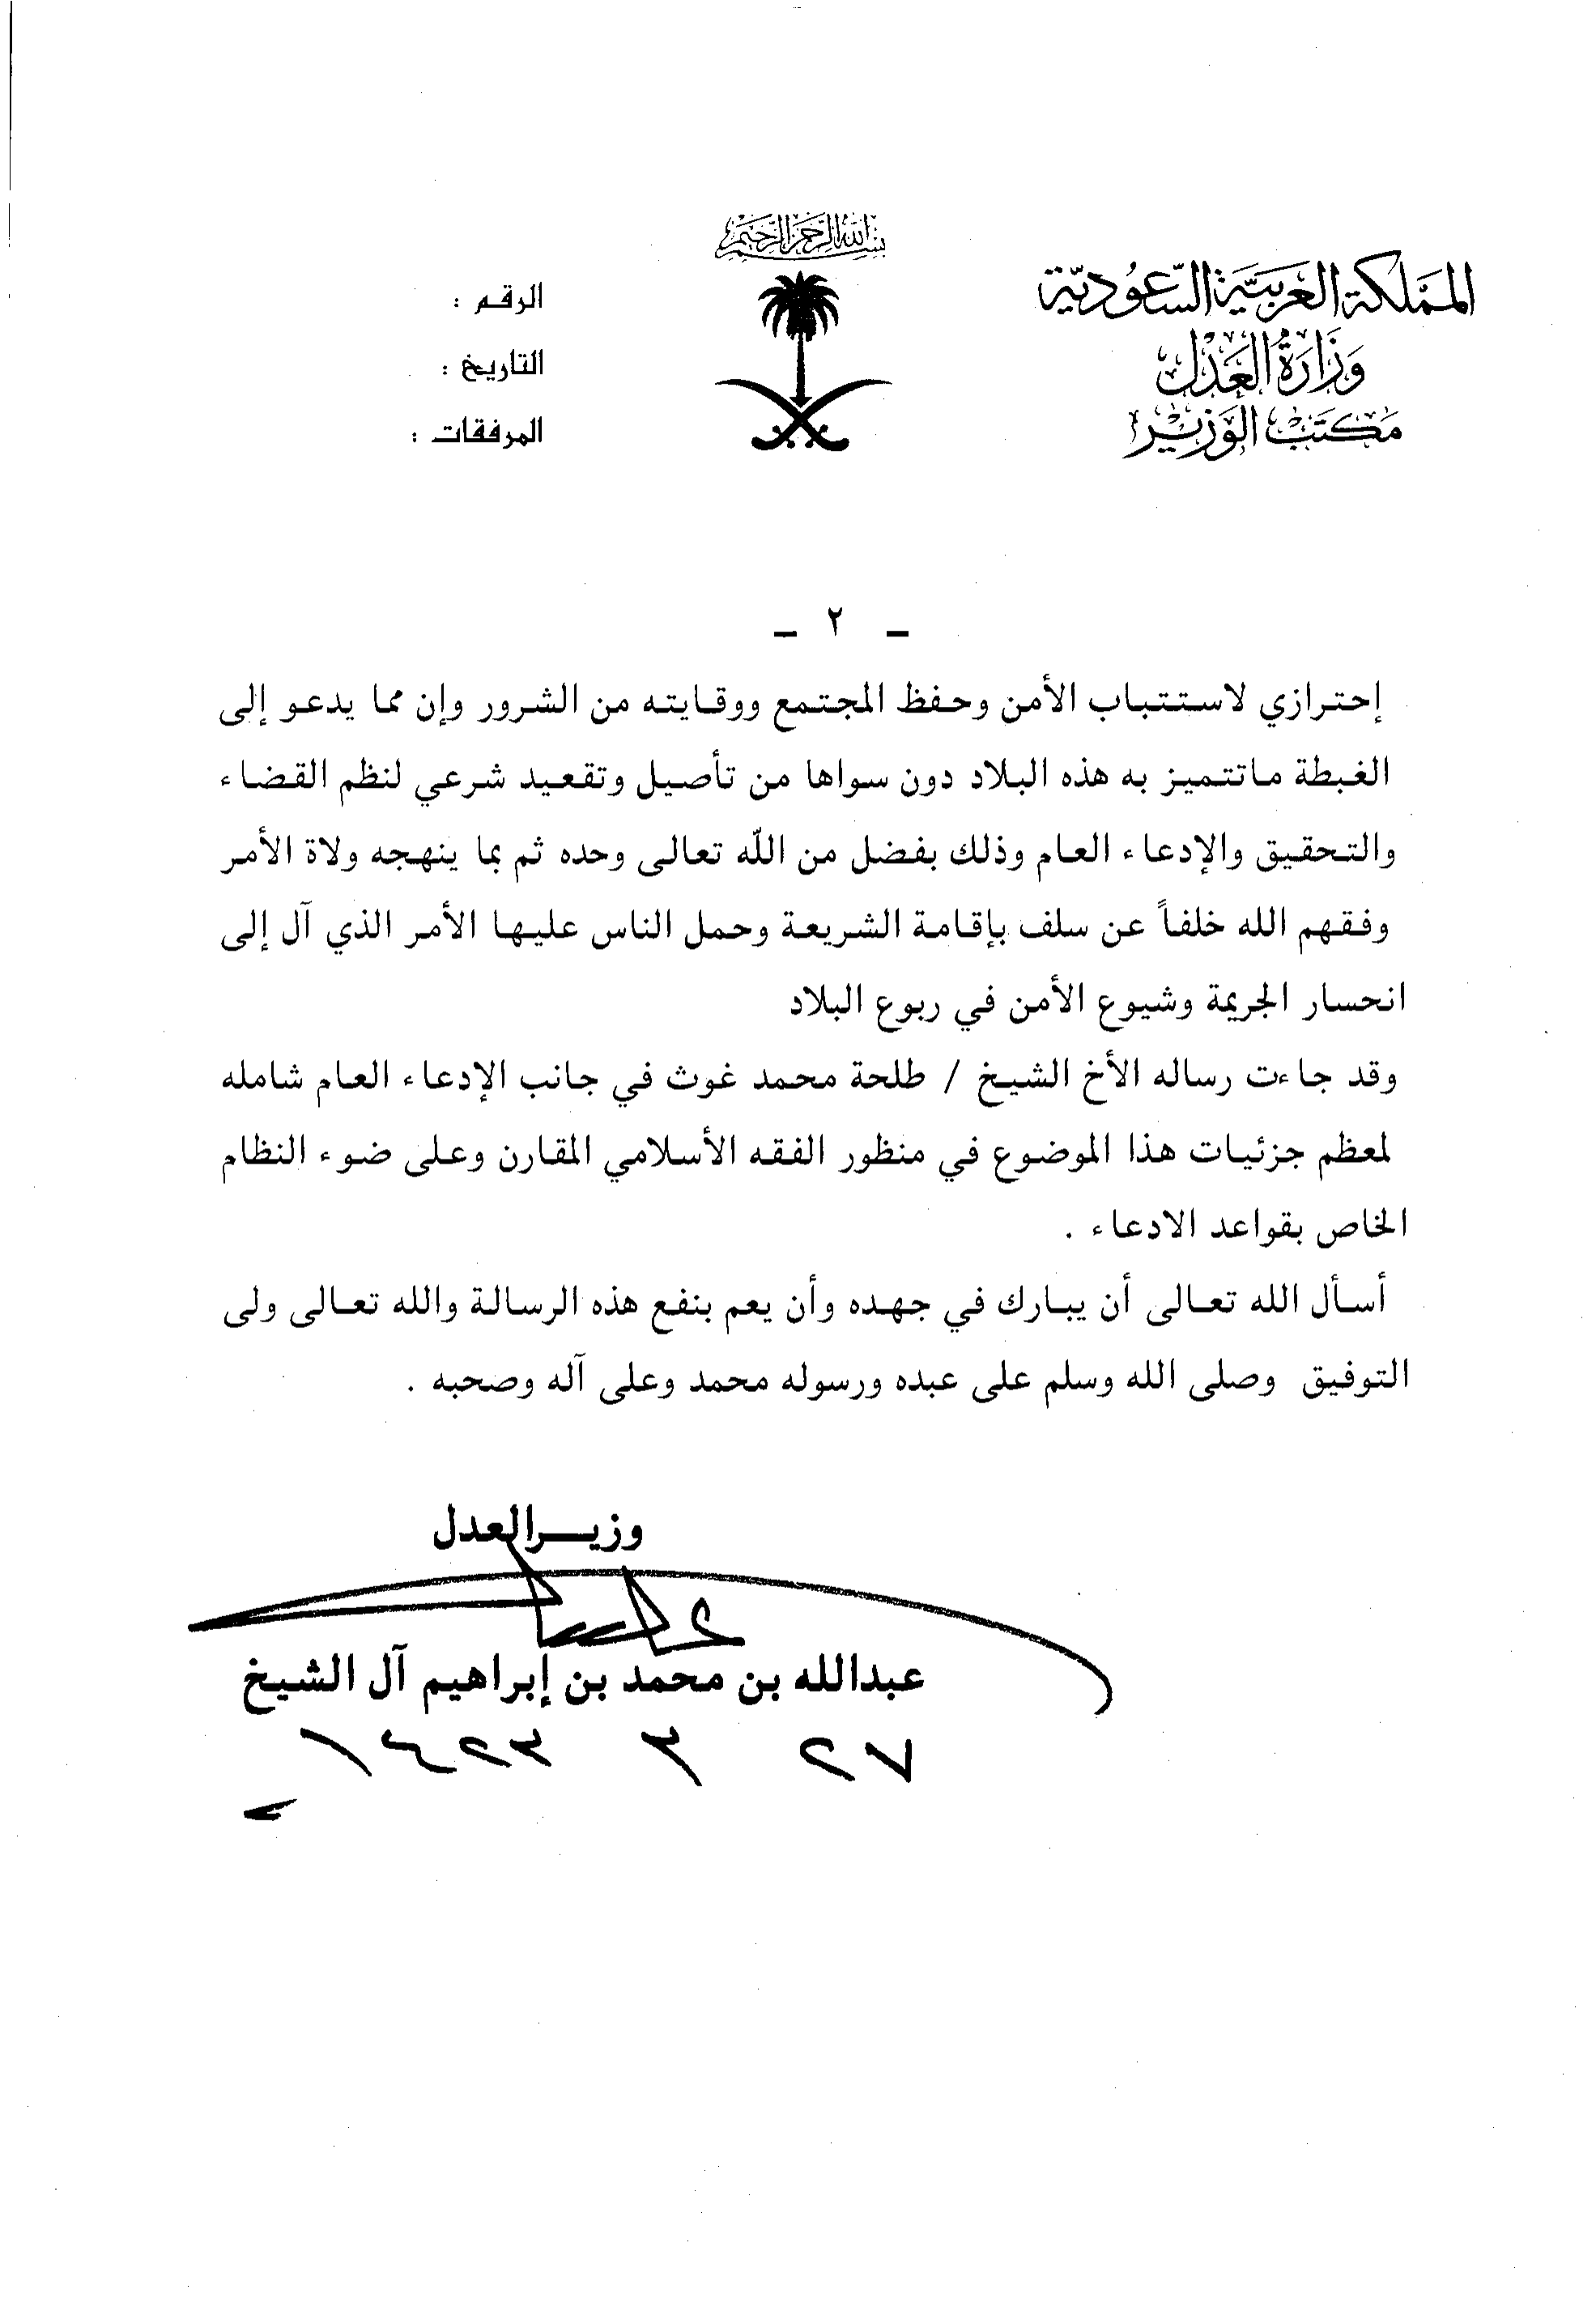 بسم الله الرحمن الرحيم
المملكة العربية السعودية
وزارة العدل
مكتب الوزير
الرقم :
التاريخ :
المرفقات :
– ٢ –
إحترازي لاستتباب الأمن وحفظ المجتمع ووقايته من الشرور وإن مما يدعو إلى
الغبطة ماتتميز به هذه البلاد دون سواها من تأصيل وتقعيد شرعي لنظم القضاء
والتحقيق والإدعاء العام وذلك بفضل من الله تعالى وحده ثم بما ينهجه ولاة الأمر
وفقهم الله خلفاً عن سلف بإقامة الشريعة وحمل الناس عليها الأمر الذي آل إلى
انحسار الجريمة وشيوع الأمن في ربوع البلاد
وقد جاءت رساله الأخ الشيخ / طلحة محمد غوث في جانب الإدعاء العام شامله
لمعظم جزئيات هذا الموضوع في منظور الفقه الأسلامي المقارن وعلى ضوء النظام
الخاص بقواعد الادعاء .
أسأل الله تعالى أن يبارك في جهده وأن يعم بنفع هذه الرسالة والله تعالى ولى
التوفيق وصلى الله وسلم على عبده ورسوله محمد وعلى آله وصحبه .
وزيـــر العدل
عبدالله بن محمد بن إبراهيم آل الشيخ
٢٧ ٣ ١٤٢٣